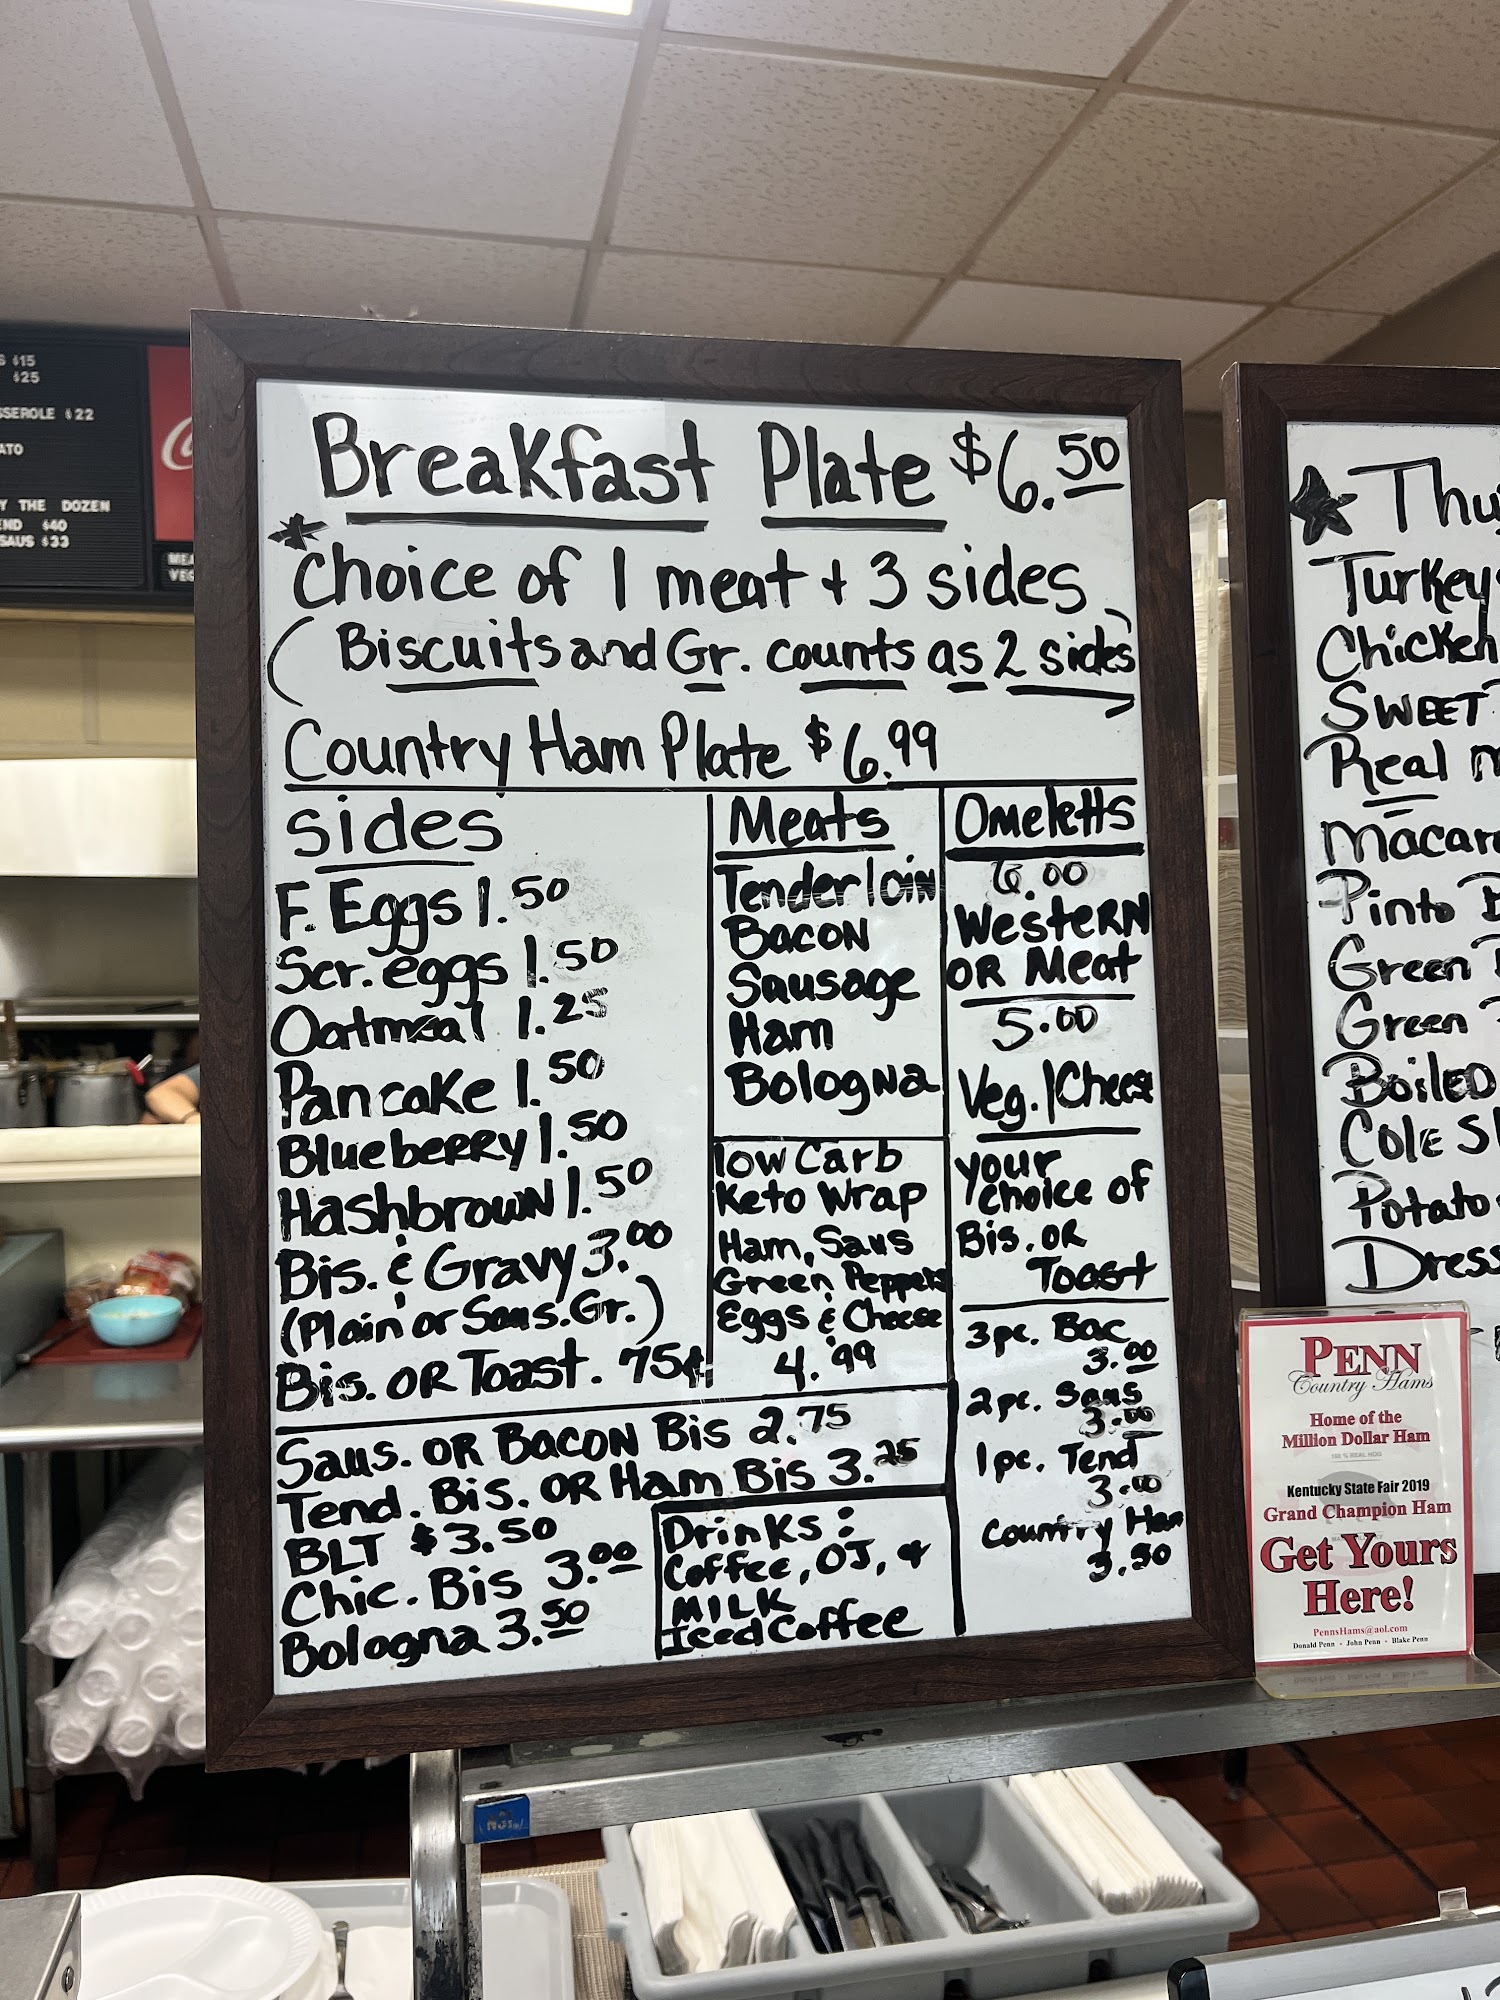 S $15
$25
SSEROLE $22
ATO
Y THE DOZEN
END $40
SAUS $33
Breakfast Plate $6.50
*Choice of 1 meat + 3 sides
(Biscuits and Gr. counts as 2 sides)
Country Ham Plate $6.99
Sides
F. Eggs 1.50
Scr. eggs 1.50
Oatmeal 1.25
Pancake 1.50
Blueberry 1.50
Hashbrown 1.50
Bis. & Gravy 3.00
(Plain or Saus. Gr.)
Bis. OR Toast. 75¢
Meats
Tenderloin
Bacon
Sausage
Ham
Bologna
low Carb
Keto Wrap
Ham, Saus
Green Peppers
Eggs & Cheese
4.99
Omeletts
6.00
Western
OR Meat
5.00
Veg./Cheese
your
choice of
Bis. OR
Toast
3pc. Bac
3.00
2pc. Saus
3.00
1pc. Tend
3.00
Country Ham
3.50
Saus. OR Bacon Bis 2.75
Tend. Bis. OR Ham Bis 3.25
BLT $3.50
Chic. Bis 3.00
Bologna 3.50
Drinks:
Coffee, OJ, &
MILK
Iced Coffee
Thu
Turkey
Chicken
SWEET
Real m
Macar
Pinto B
Green
Green
Boiled
Cole Sl
Potato
Dress
PENN
Country Hams
Home of the
Million Dollar Ham
100 % REAL HOG
Kentucky State Fair 2019
Grand Champion Ham
Get Yours
Here!
PennsHams@aol.com
Donald Penn • John Penn • Blake Penn